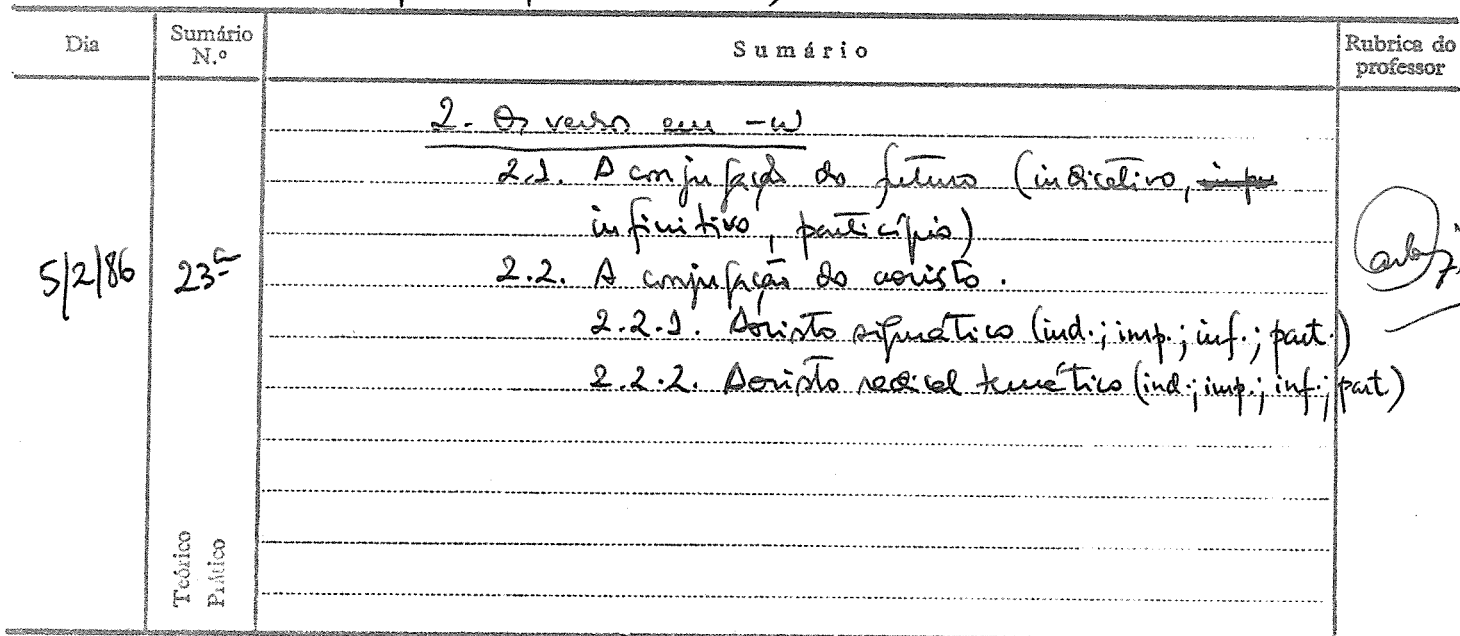 Dia
Sumário N.º
Sumário
Rubrica do professor
2. Os verbos em -ω
2.1. A conjugação do futuro (indicativo,
infinitivo, particípio)
5/2/86 23ª 2.2. A conjugação do aoristo.
2.2.1. Aoristo sigmático (ind.; imp.; inf.; part.)
2.2.2. Aoristo radical temático (ind.; imp.; inf.; part)
Teórico
Prático